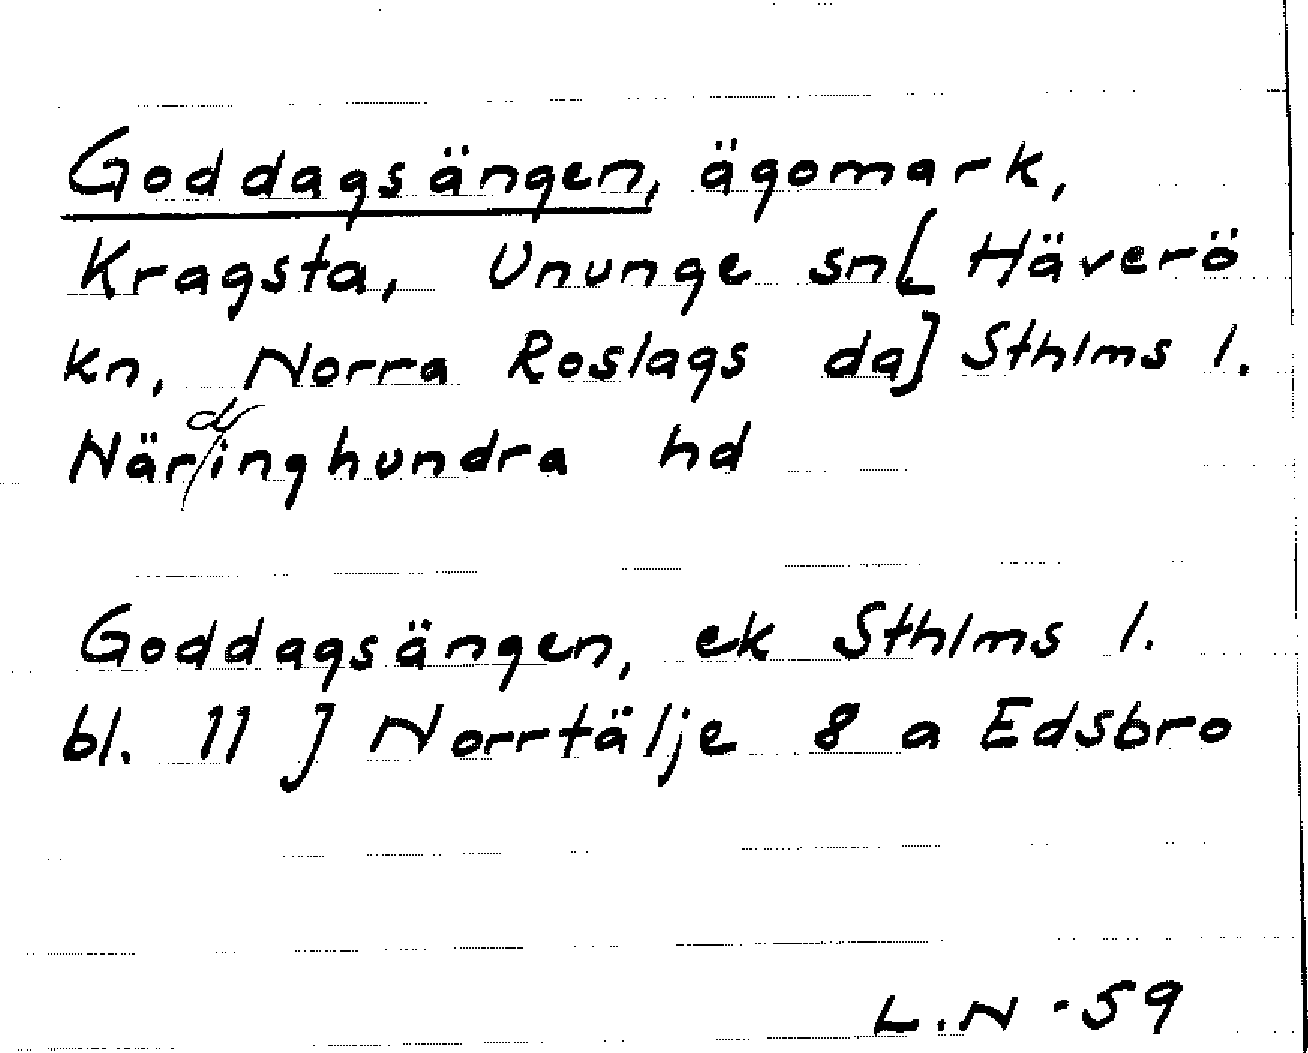 Goddagsängen, ägomark,
Kragsta, Ununge sn[ Häverö
kn, Norra Roslags da] Sthlms l.
Närdinghundra hd
Goddagsängen, ek Sthlms l.
bl. 11 J Norrtälje 8 a Edsbro
L.N -59